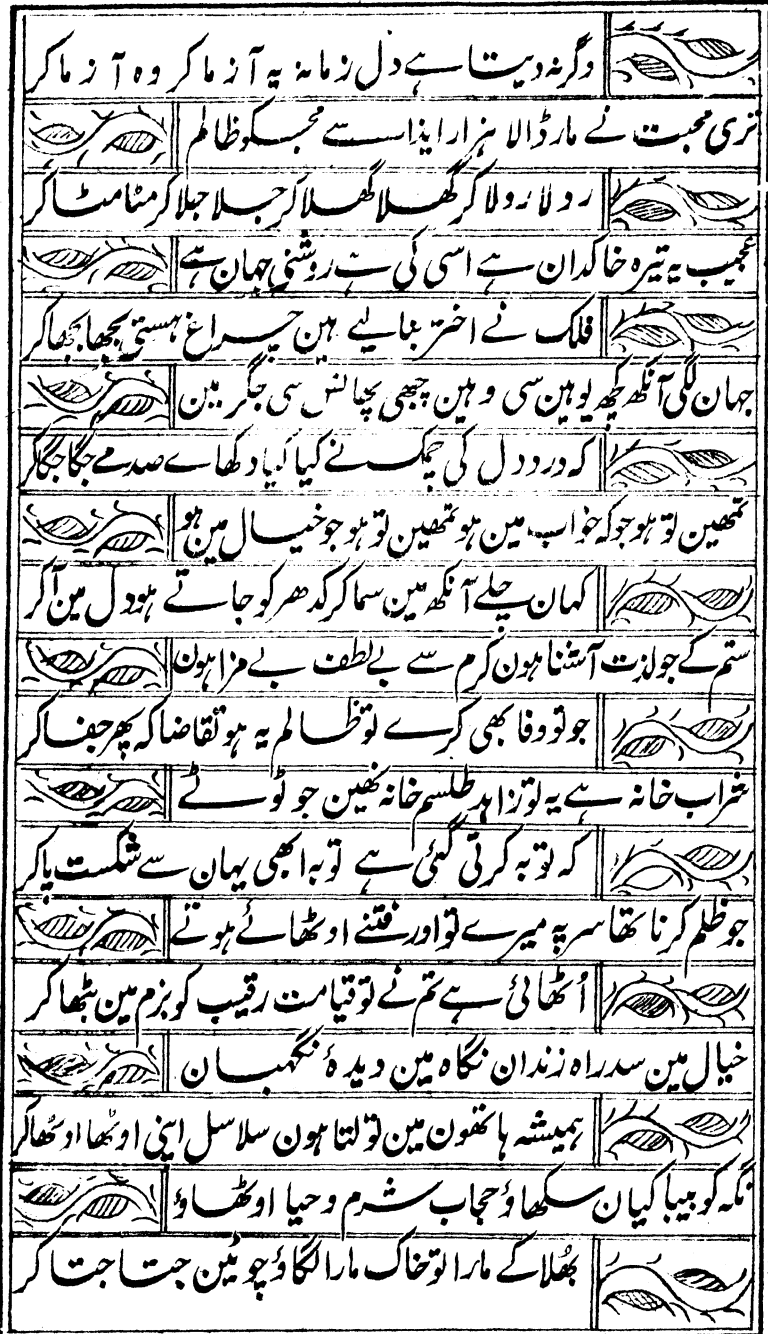 وگرنہ دیتا ہے دل زمانہ یہ آزما کر وہ آزما کر
تری محبت نے مار ڈالا ہزار ایذا سے مجسکو ظالم
رولا رولا کر گھلا گھلا کر جلا جلا کر مٹا مٹا کر
عجیب یہ تیرہ خاکدان ہے اسی کی ہے روشنی جہان ہے
فلک نے اختر بنا لیے ہین چراغ ہستی بجھا بجھا کر
جہان لگی آنکھ کچھ یوہین سی وہین چبھی پھانس سی جگر مین
کہ درد دل کی چمک نے کیا کیا دکھاے صدمے جگا جگا کر
تمھین تو ہو جو کہ خواب مین ہو تمھین تو ہو جو خیال مین ہو
کہان چلے آنکھ مین سما کر کدھر کو جاتے ہو دل مین آ کر
ستم کے جو لذت آشنا ہون کرم سے بے لطف بے مزا ہون
جو تو وفا بھی کرے تو ظالم یہ ہو تقاضا کہ پھر جفا کر
شراب خانہ ہے یہ تو زاہد طلسم خانہ نھین جو ٹوٹے
کہ توبہ کرتی گئی ہے توبہ ابھی یہان سے شکست پا کر
جو ظلم کرنا تھا سر پہ میرے تو اور فتنے اوٹھائے ہوتے
اُٹھائی ہے تم نے تو قیامت رقیب کو بزم مین بٹھا کر
خیال مین سد راہ زندان نگاہ مین دیدۂ نگہبان
ہمیشہ ہاتھون مین تولتا ہون سلاسل اپنی اوٹھا اوٹھا کر
نگہ کو بیباکیان سکھاؤ حجاب شرم و حیا اوٹھاؤ
بھُلا کے مارا تو خاک مارا لگاؤ چوٹین جتا جتا کر